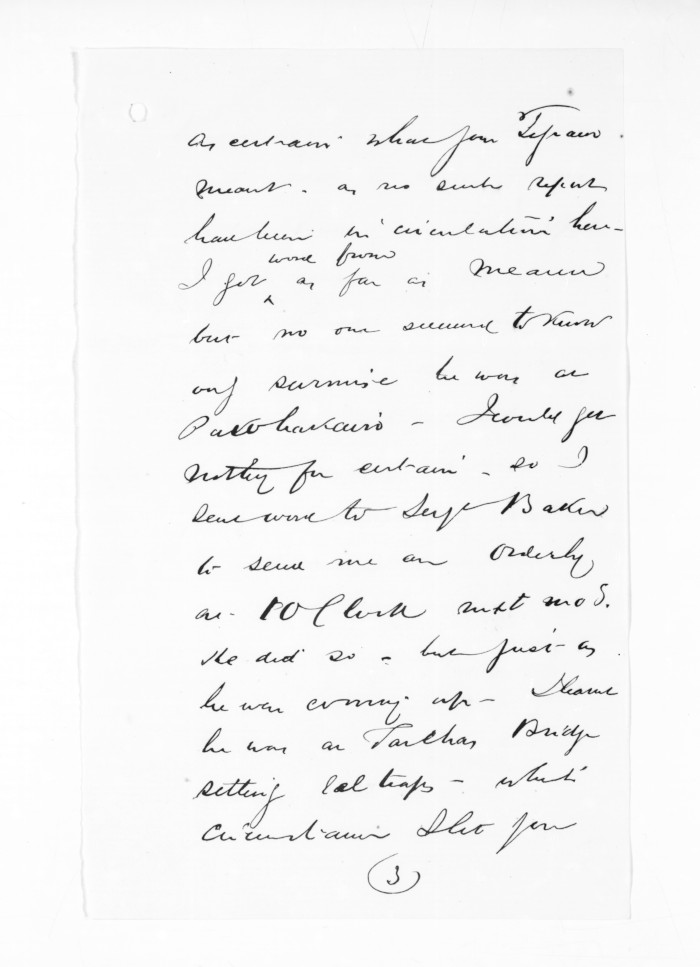 ascertain what your Telegram
meant - as no such reports
have been in circulation here -
word from
I got ^ as far as Meanee
but no one seemed to know
only surmise he was at
Pakowhai - I could get
nothing for certain - so I
sent word to Sergt Baker
to send me an Orderly
at 10 O'Clock next mog.
He did so - but just as
he was coming up - I heard
he was at Bridge
setting Eel traps - which
Circumstance I let you
(3)